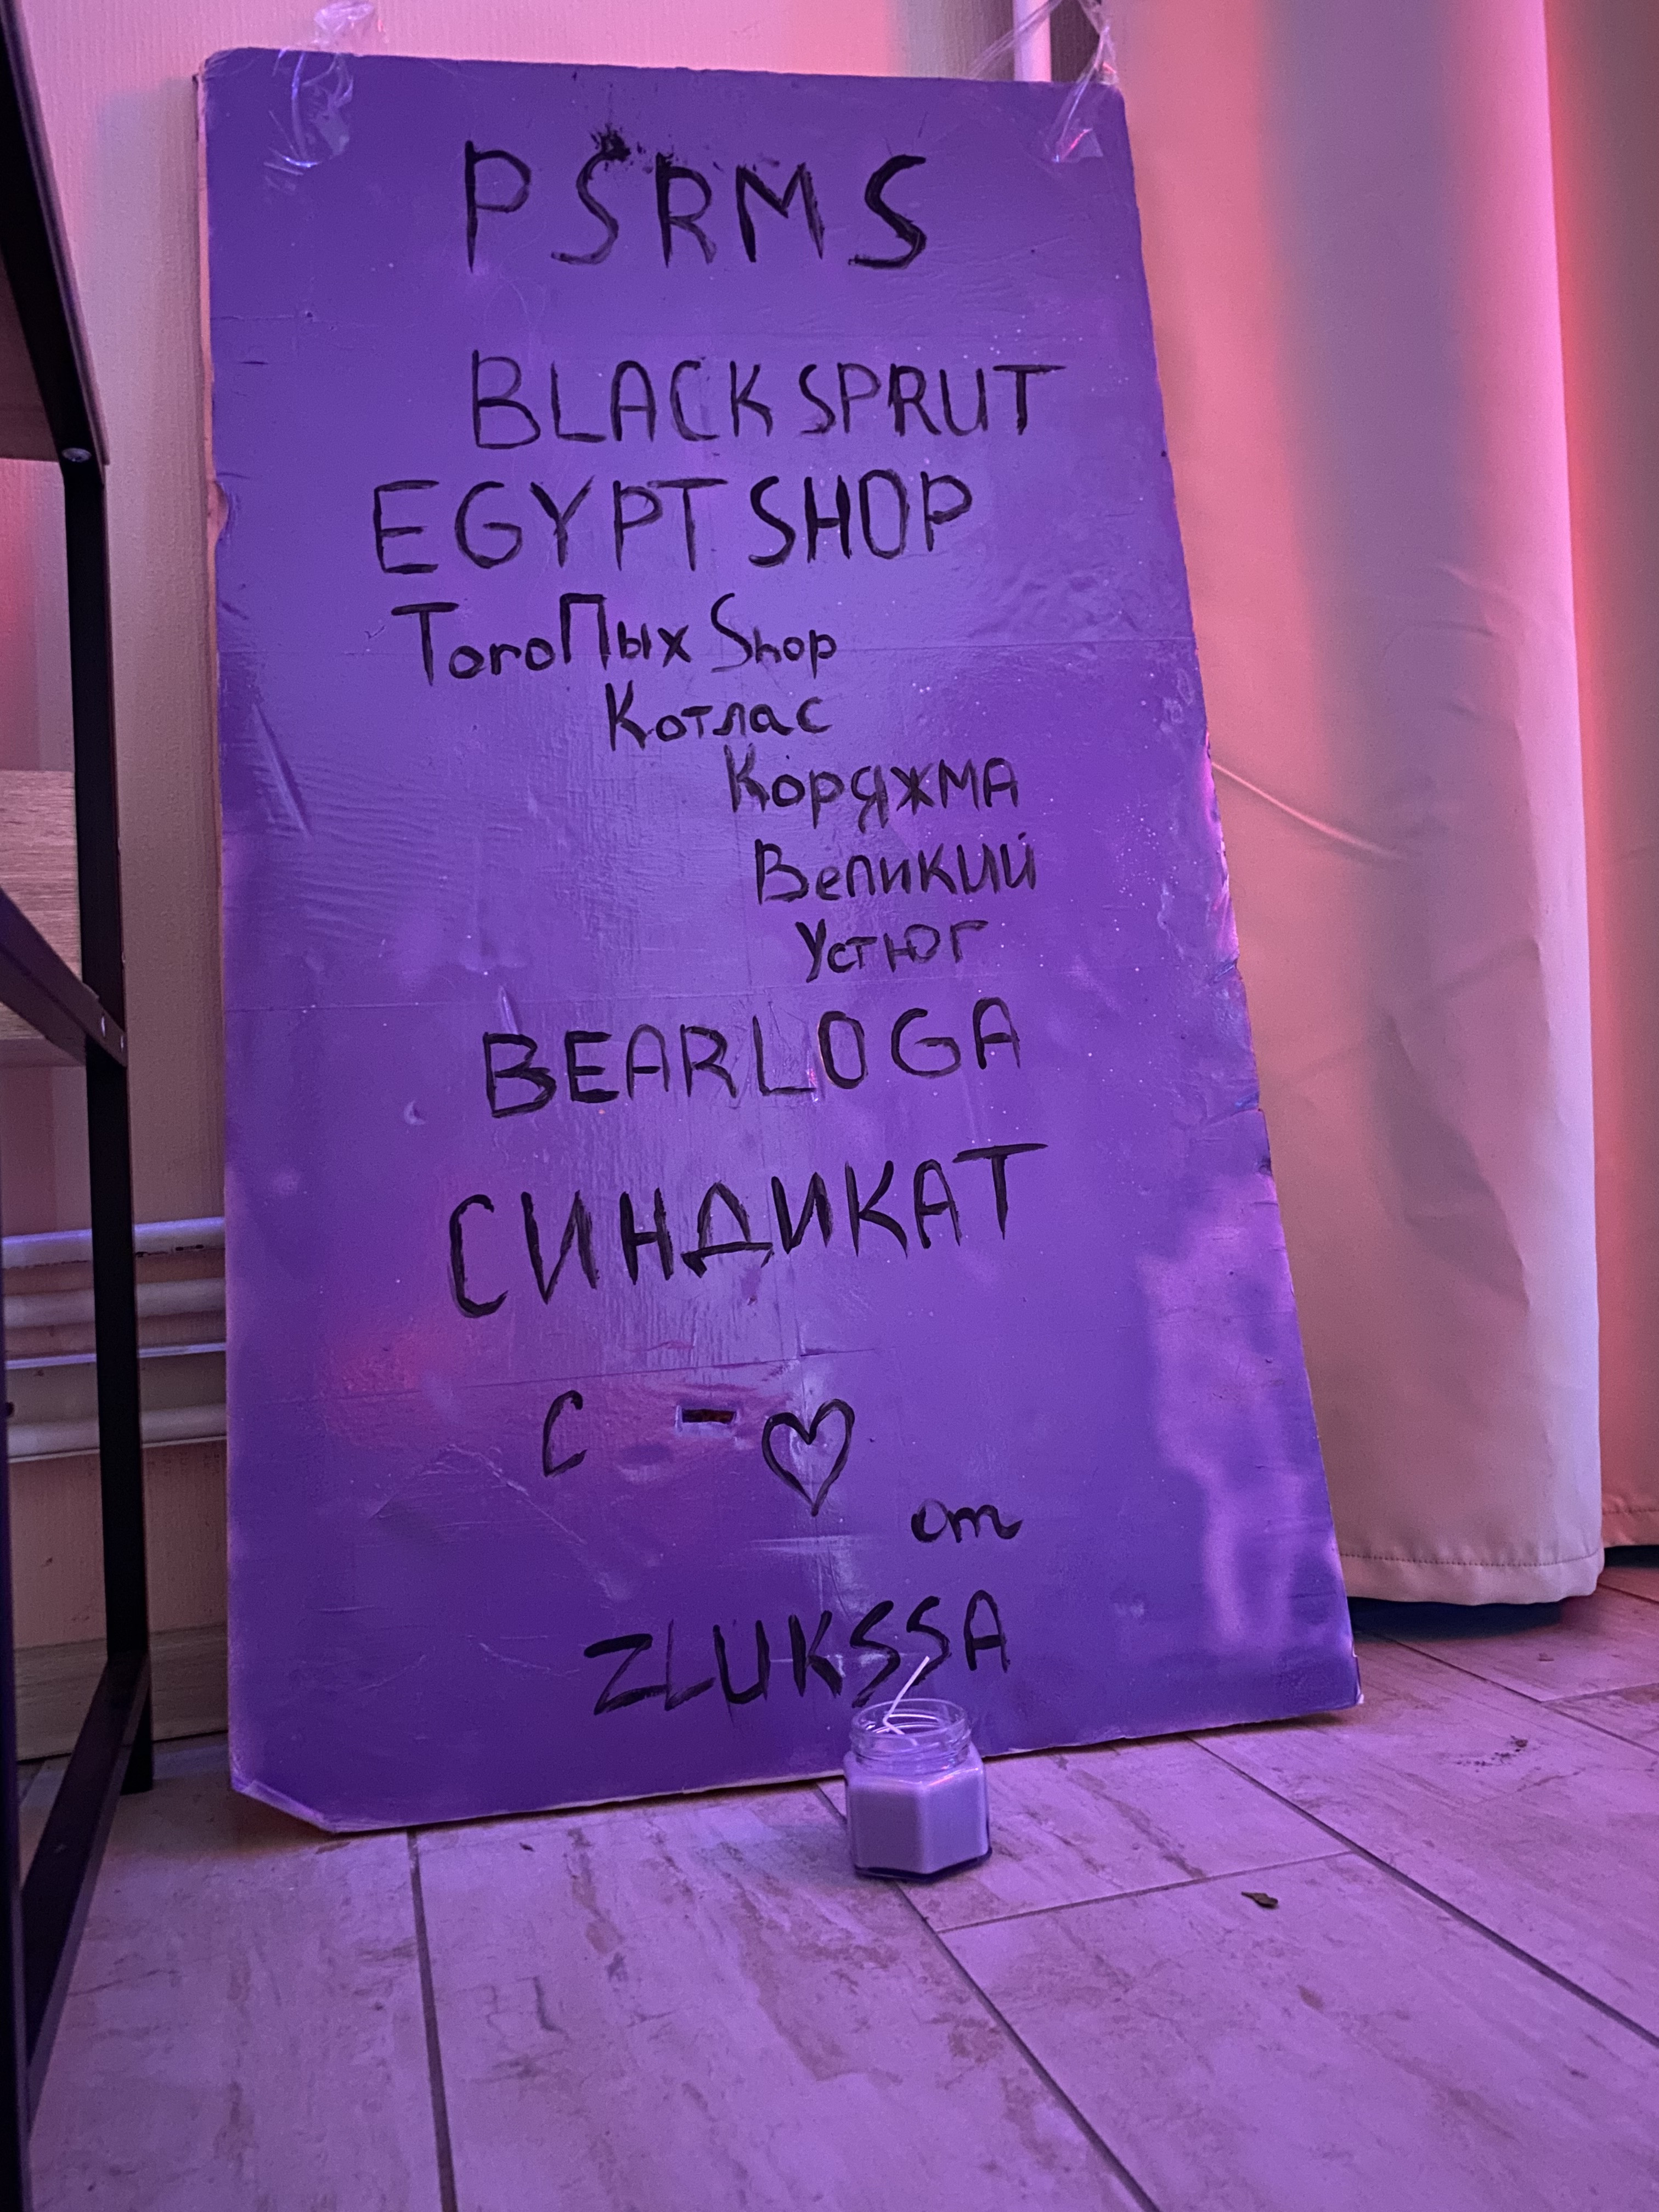 PSRMS
BLACKSPRUT
EGYPT SHOP
ТогоПых Shop
Котлас
Коряжма
Великий
Устюг
BEARLOGA
СИНДИКАТ
С - ♡
от
ZLUKSSA